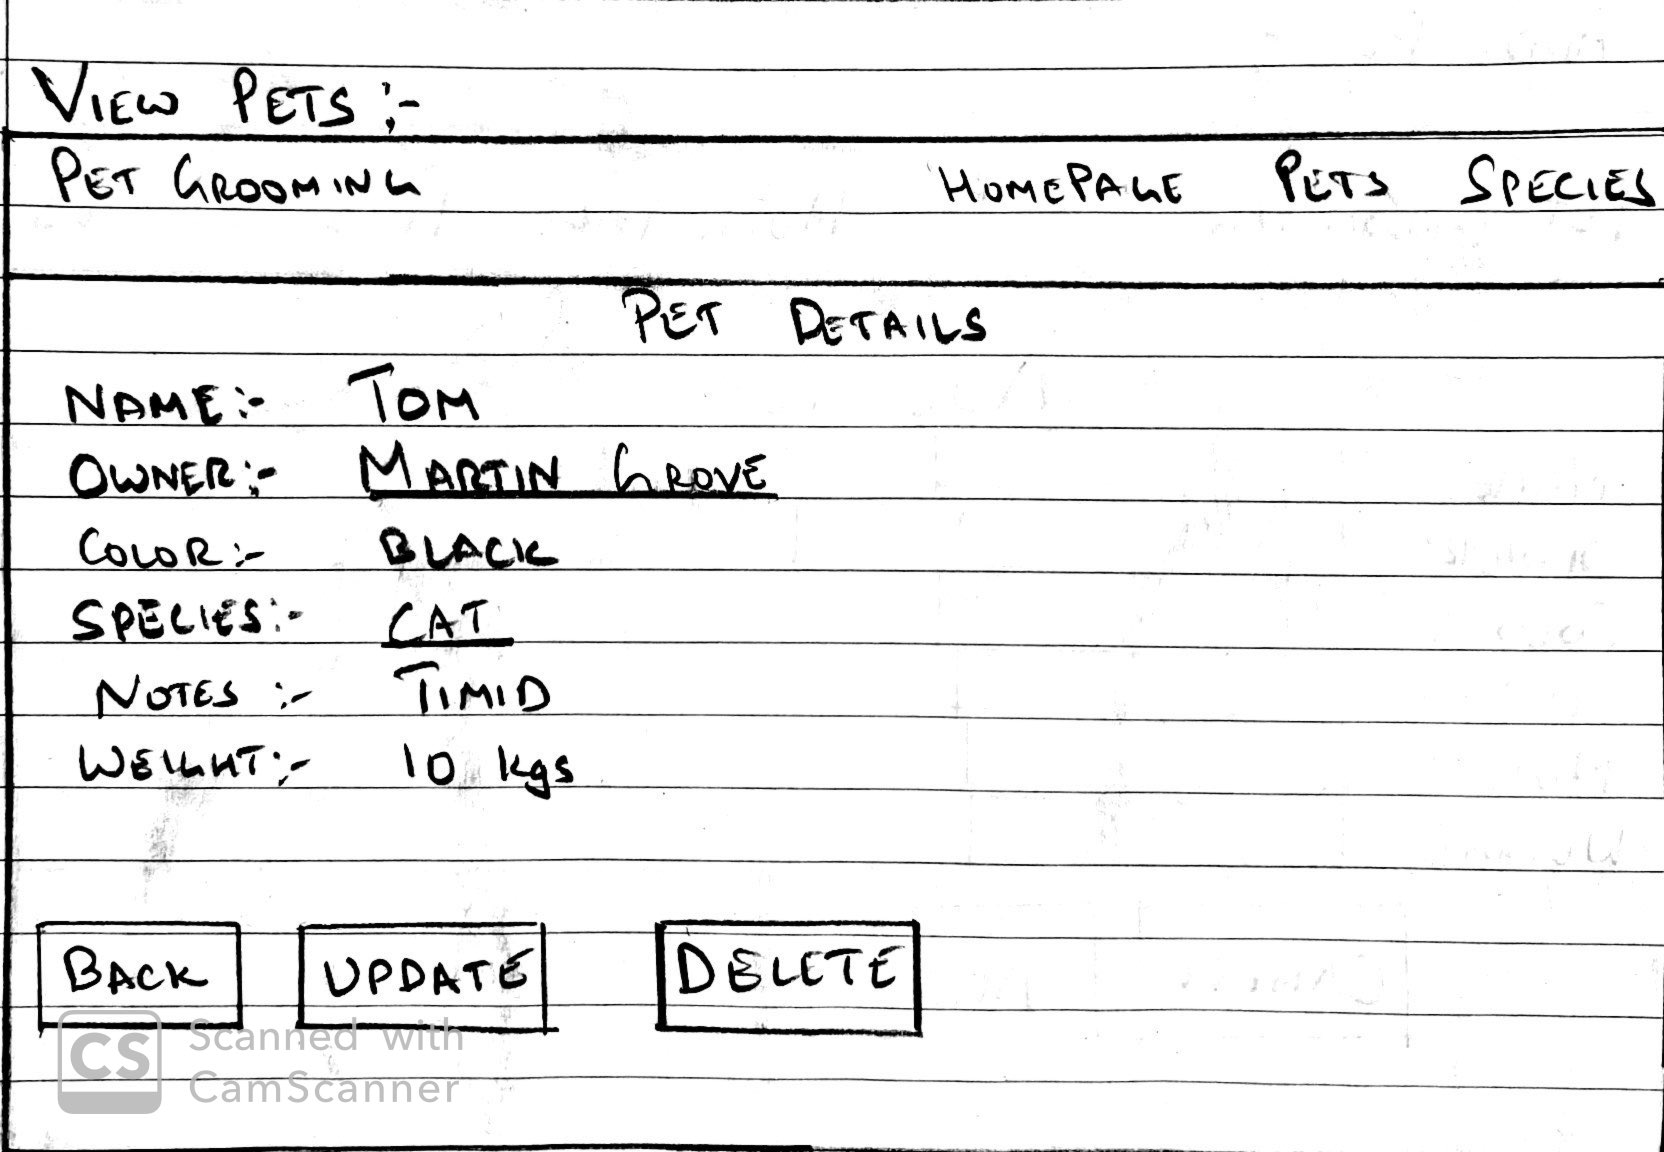 VIEW PETS :-
PET GROOMING HOMEPAGE PETS SPECIES
PET DETAILS
NAME:- TOM
OWNER:- MARTIN GROVE
COLOR:- BLACK
SPECIES:- CAT
NOTES :- TIMID
WEIGHT:- 10 kgs
BACK UPDATE DELETE
CS Scanned with
CamScanner